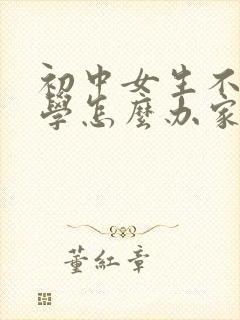 初中女生不
學怎麼办家
董紅章